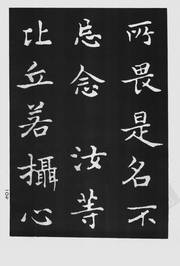 所畏是名不
忘念　汝等
比丘若攝心